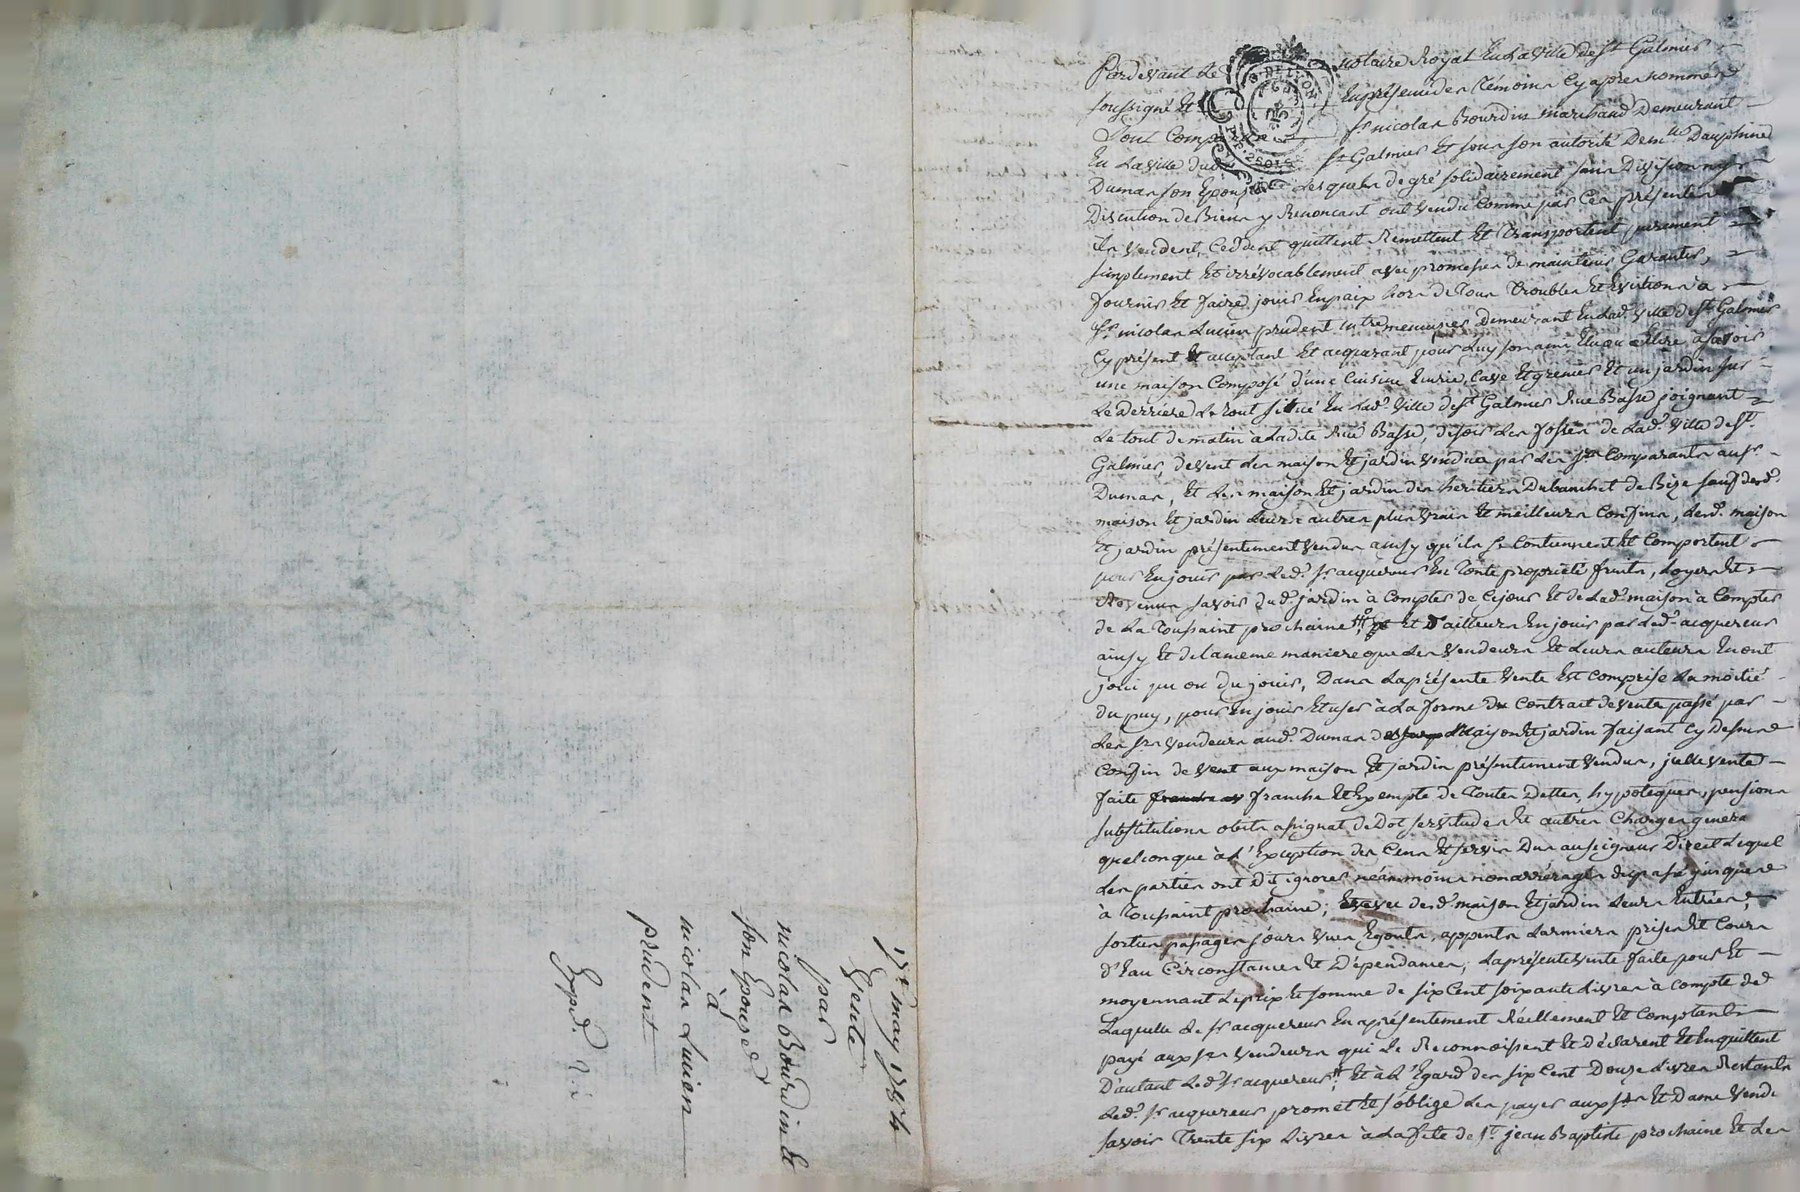 17e may 1784
Vente
par
nicolas Bourdin Et
son Epouse
à
nicolas Lucien
prudent
Expd.
Pardevant Le notaire Royal En La Ville de st Galmier
soussigné Et En présence des Témoins Cy apres nommés
Sont Comparus sr nicolas Bourdin marchand Demeurant
En La Ville dud. st Galmier Et sous son autorité Demlle Dauphine
Dumas son Epouse Lesquels de gré solidairement sans Division ny
Discution de Biens y Renoncant ont vendu comme par Ces présentes
Ils Vendent, Ceddent quittent Remettent Et Transportent purement
simplement Et irrévocablement avec promesses de maintenir Garantir,
fournir Et faire jouir En paix hors de Tous Troubles Et Evictions à
sr nicolas Lucien prudent me menuisier Demeurant En Lad. Ville de st Galmier
Cy présent Et acceptant Et acquerant pour Luy son ami Elu ou a Elire a savoir
une maison Composé d'une Cuisine Ecurie, Cave Et grenier Et un jardin sur
Le Derriere Le tout situé En Lad. Ville de st Galmier Rue Basse joignant
Le tout de matin à Ladite Rue Basse, de soir Les fossés de Lad. Ville de st.
Galmier, de vent Les maison Et jardin vendus par Les srs Comparants au sr
Dumas, Et Les maison Et jardin des heritiers Dubanchet de Bize sauf desd.
maison Et jardin Leurs autres plus vrais Et meilleurs Confins, Lesd. maison
Et jardin présentement vendus ainsy qu'ils se Contiennent Et Comportent
pour En jouir par Led. sr acquereur En Toute propriété fruits, Loyers Et
Revenus savoir dud. jardin à Compter de Cejour Et de Lad. maison à Compter
de La Toussaint prochaine, Et D'ailleurs En jouir par Led. acquereur
ainsy Et de la meme maniere que Les Vendeurs Et Leurs auteurs En ont
joui pu ou du jouir, Dans La présente Vente Est Comprise La moitié
du puy, pour En jouir Et user à La forme du Contrait de vente passé par
Les srs Vendeurs aud. Dumas des maison Et jardin faisant Cy Dessus
Confin de Vent aux maison Et jardin présentement Vendus, jcelle vente
faite franche Et Exempte de Toutes Dettes, hypoteques, pensions
substitutions obits assignat de Dot servitudes Et autres Charges generx
quelconque à L'Exception des Cens Et servis Dus au seigneur Direct Lequel
Les parties ont Dit ignorer neanmoins non arréragés du passé jusques
à Toussaint prochaine; avec desd. maison Et jardin Leurs Entrées,
sorties passages jours vues Egouts, appents Larmiers prises Et Cours
d'Eau Circonstances Et Dépendances, La présente vente faite pour Et
moyennant Le prix Et somme de six Cent soixante Livres à compte de
Laquelle Le sr acquereur En a présentement Réellement Et Comptant
payé aux srs Vendeurs qui Le Reconnoissent Et Déclarent Et En quittent
D'autant Led. sr acquereur; Et à L'Egard des six Cent Douze Livres Restants
Led. sr acquereur promet Et s'oblige Les payer aux srs Et Dame Vend.
savoir Trente six Livres à La fete de st. jean Baptiste prochaine Et Les